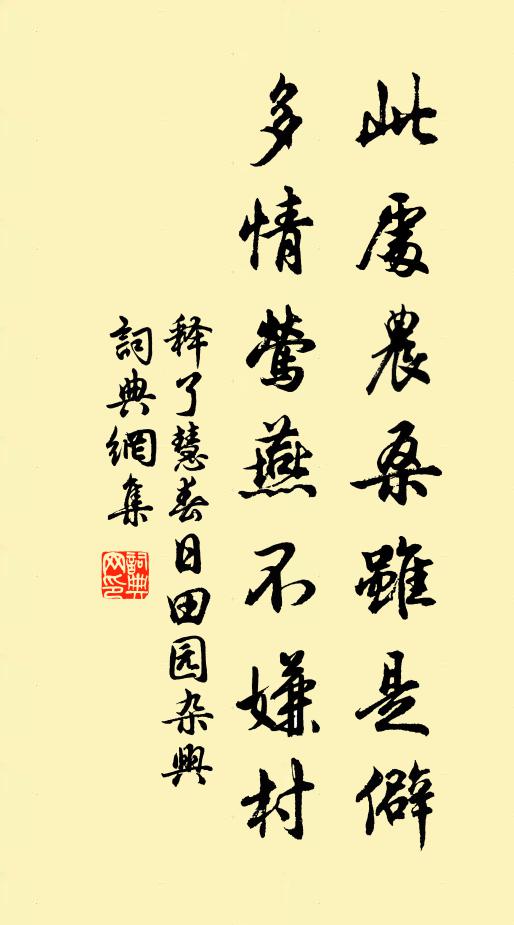 此處農桑雖是僻
多情鶯燕不嫌村
释了慧春日田园杂興
詞典網集
詞典
网印